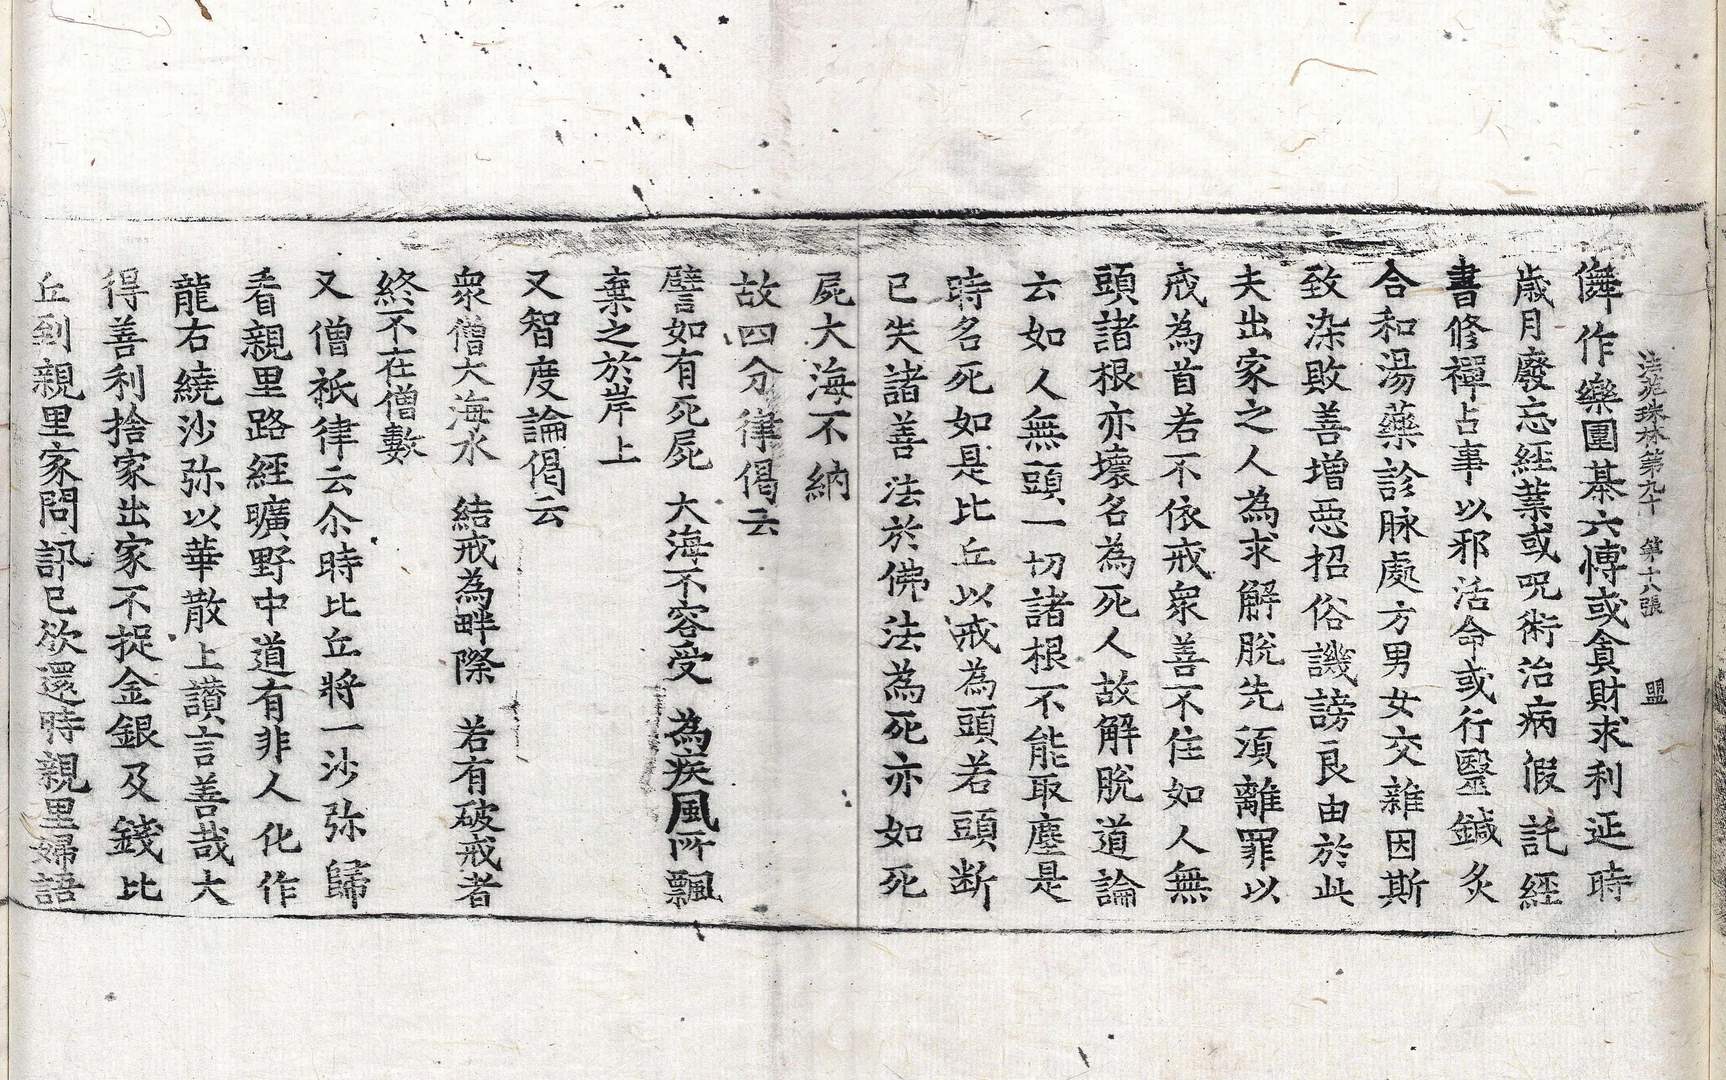 法苑珠林第九十 第十八張 盟
儛作樂圍棊六愽或貪財求利延時
歲月廢忘經業或呪術治病假託經
書修禪占事以邪活命或行毉鍼灸
合和湯藥診脉處方男女交雜因斯
致染敗善增惡招俗譏謗良由於此
夫出家之人為求解脫先湏離罪以
戒為首若不依戒衆善不住如人無
頭諸根亦壞名為死人故解脫道論
云如人無頭一切諸根不能取塵是
時名死如是比丘以戒為頭若頭断
已失諸善法於佛法為死亦如死
屍大海不納
故四分律偈云
譬如有死屍 大海不容受 為疾風所飄
棄之於岸上
又智度論偈云
衆僧大海水 結戒為畔際 若有破戒者
終不在僧數
又僧祇律云尒時比丘將一沙弥歸
看親里路經曠野中道有非人化作
龍右繞沙弥以華散上讃言善哉大
得善利捨家出家不捉金銀及錢比
丘到親里家問訊已欲還時親里婦語